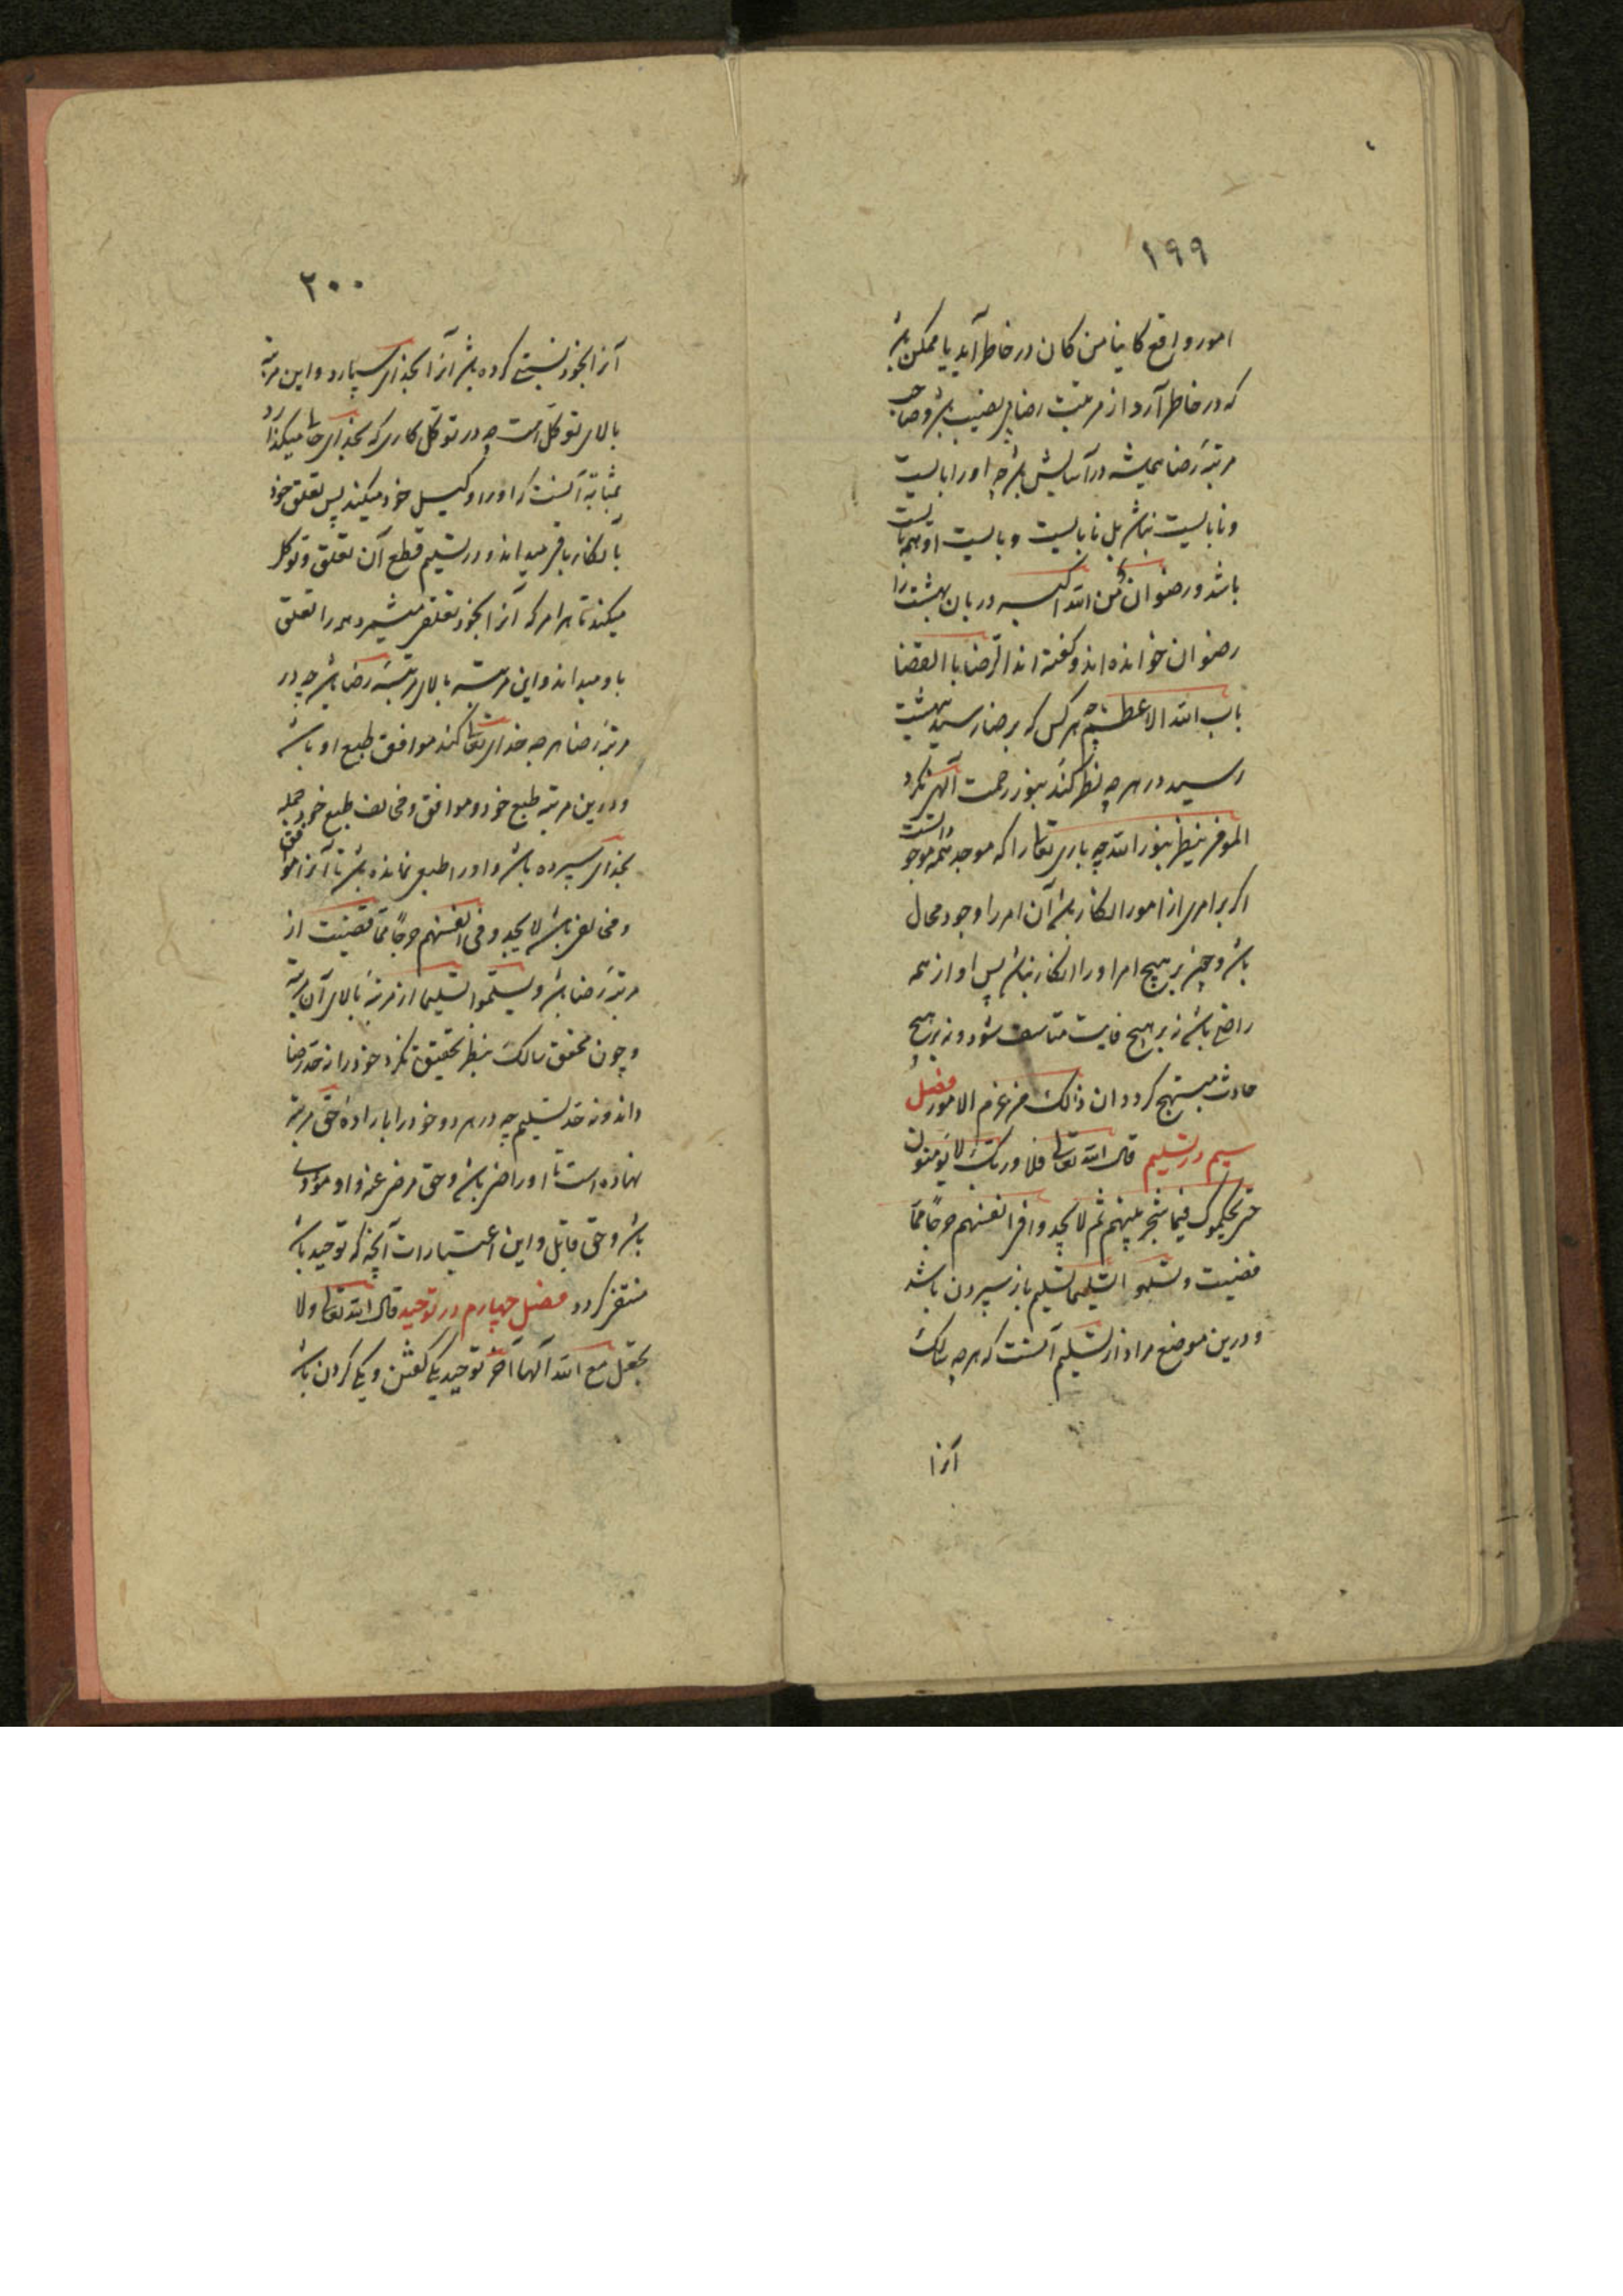 ١٩٩
امور واقع کاینا من کان در خاطر آید یا ممکن باشد
که در خاطر آرد از مرتبت رضا بی نصیب باشد و صاحب
مرتبهٔ رضا همیشه در آسایش باشد چه او را بایست
و نابایست نباشد بل نابایست و بایست او همه بایست
باشد و رضوان من الله اکبر دربان بهشت را
رضوان خوانده اند و گفته اند الرضا با القضا
باب الله الاعظم چه هر کس که برضا رسید بهشت
رسید در هر چه نظر کند بنور رحمت الهی نکرد
المومن ینظر بنور الله چه باری تعالی را که موجد همه موجودات
اگر بر امری از امور انکار باشد آن امر را وجود محال
باشد و چون بر هیچ امر او را انکار نباشد پس او از همه
راضی باشد نه بر هیچ فایت متاسف شود و نه بر هیچ
حادث مبتهج کردد ان ذلک من عزم الامور فصل
سیم در تسلیم قال الله تعالی فلا وربک لا یومنون
حتی یحکموک فیما شجر بینهم ثم لا یجدوا فی انفسهم حرجا مما
قضیت و یسلموا تسلیما تسلیم باز سپردن باشد
و درین موضع مراد از تسلیم آنست که هر چه سالک
آنرا
٢٠٠
آنرا بخود نسبتی کرده باشد آنرا بخدای سپارد و این مرتبه
بالای توکل است چه در توکل کاری که بخدای تعالی میکذارد
بمثابه آنست که او را وکیل خود میکند پس تعلق خود
بآنکار باقی میداند و در تسلیم قطع آن تعلق و توکل
میکند تا هر امر که آنرا بخود تعلق میشمرد همه را تعلق
باو میداند و این مرتبه بالای مرتبهٔ رضا باشد چه در
مرتبهٔ رضا هر چه خدای تعالی کند موافق طبع او باشد
و درین مرتبه طبع خود و موافق و مخالف طبع خود جمله
بخدای سپرده باشد و او را طبعی نمانده باشد تا آنرا موافق
و مخالفی باشد لا یجدوا فی انفسهم حرجا مما قضیت از
مرتبهٔ رضا باشد و یسلموا تسلیما از مرتبهٔ بالای آن مرتبه
و چون محقق سالک بنظر تحقیق نکرد خود را نه حد رضا
داند و نه حد تسلیم چه در هر دو خود را بازاده حق مرتبه
نهاده است تا او راضی باشد و حق مرضی عنه و او مودی
باشد و حق قابل و این اعتبارات آنجا که توحید باشد
منتفی کردد فصل چهارم در توحید قال الله تعالی ولا
تجعل مع الله الها آخر توحید یکی گفتن و یکی کردن باشد